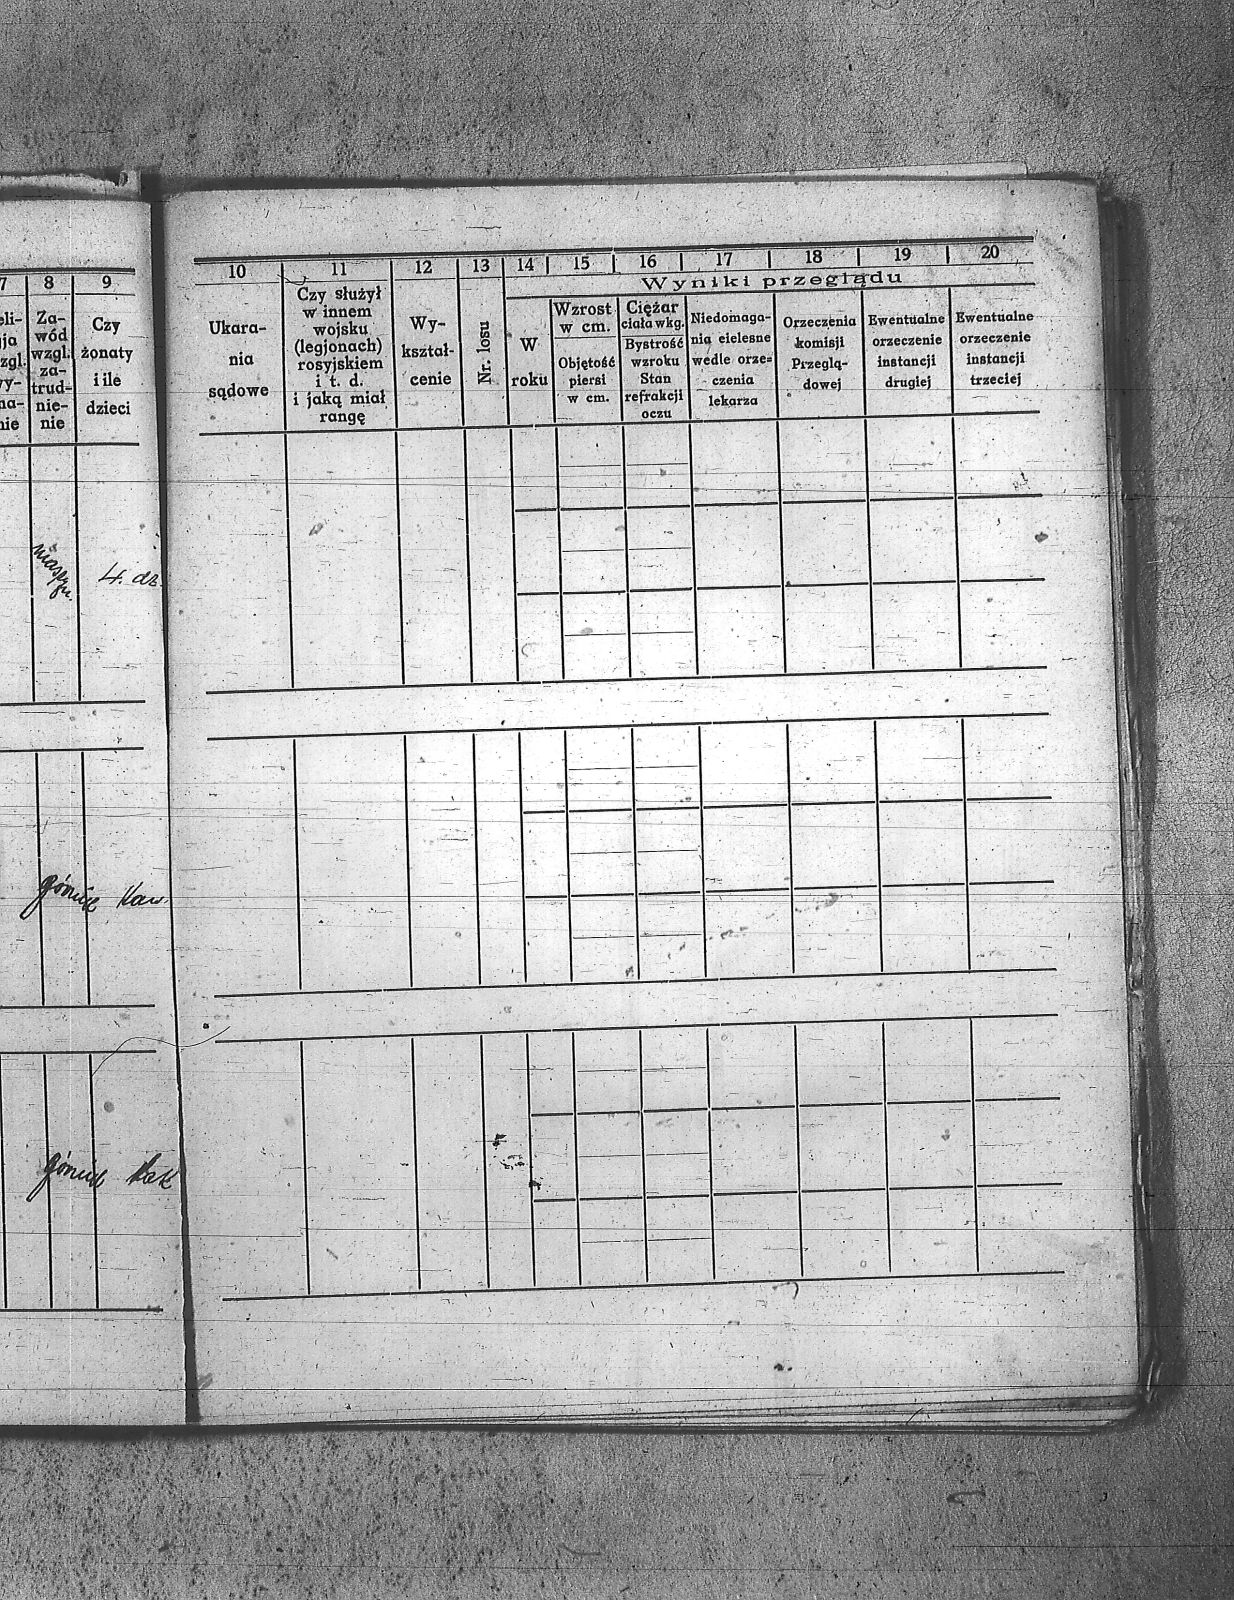 7 8 9
eli-
ja
zgl.
wy-
na-
nie
Za-
wód
wzgl.
za-
trud-
nie-
nie
Czy
żonaty
i ile
dzieci
4. dz.
górnik kaw.
górnik
10 11 12 13 14 15 16 17 18 19 20
Wyniki przeglądu
Ukara-
nia
sądowe
Czy służył
w innem
wojsku
(legjonach)
rosyjskiem
i t. d.
i jaką miał
rangę
Wy-
kształ-
cenie
Nr. losu
W
roku
Wzrost
w cm.
Objętość
piersi
w cm.
Ciężar
ciała wkg.
Bystrość
wzroku
Stan
refrakcji
oczu
Niedomaga-
nia cielesne
wedle orze-
czenia
lekarza
Orzeczenia
komisji
Przeglą-
dowej
Ewentualne
orzeczenie
instancji
drugiej
Ewentualne
orzeczenie
instancji
trzeciej